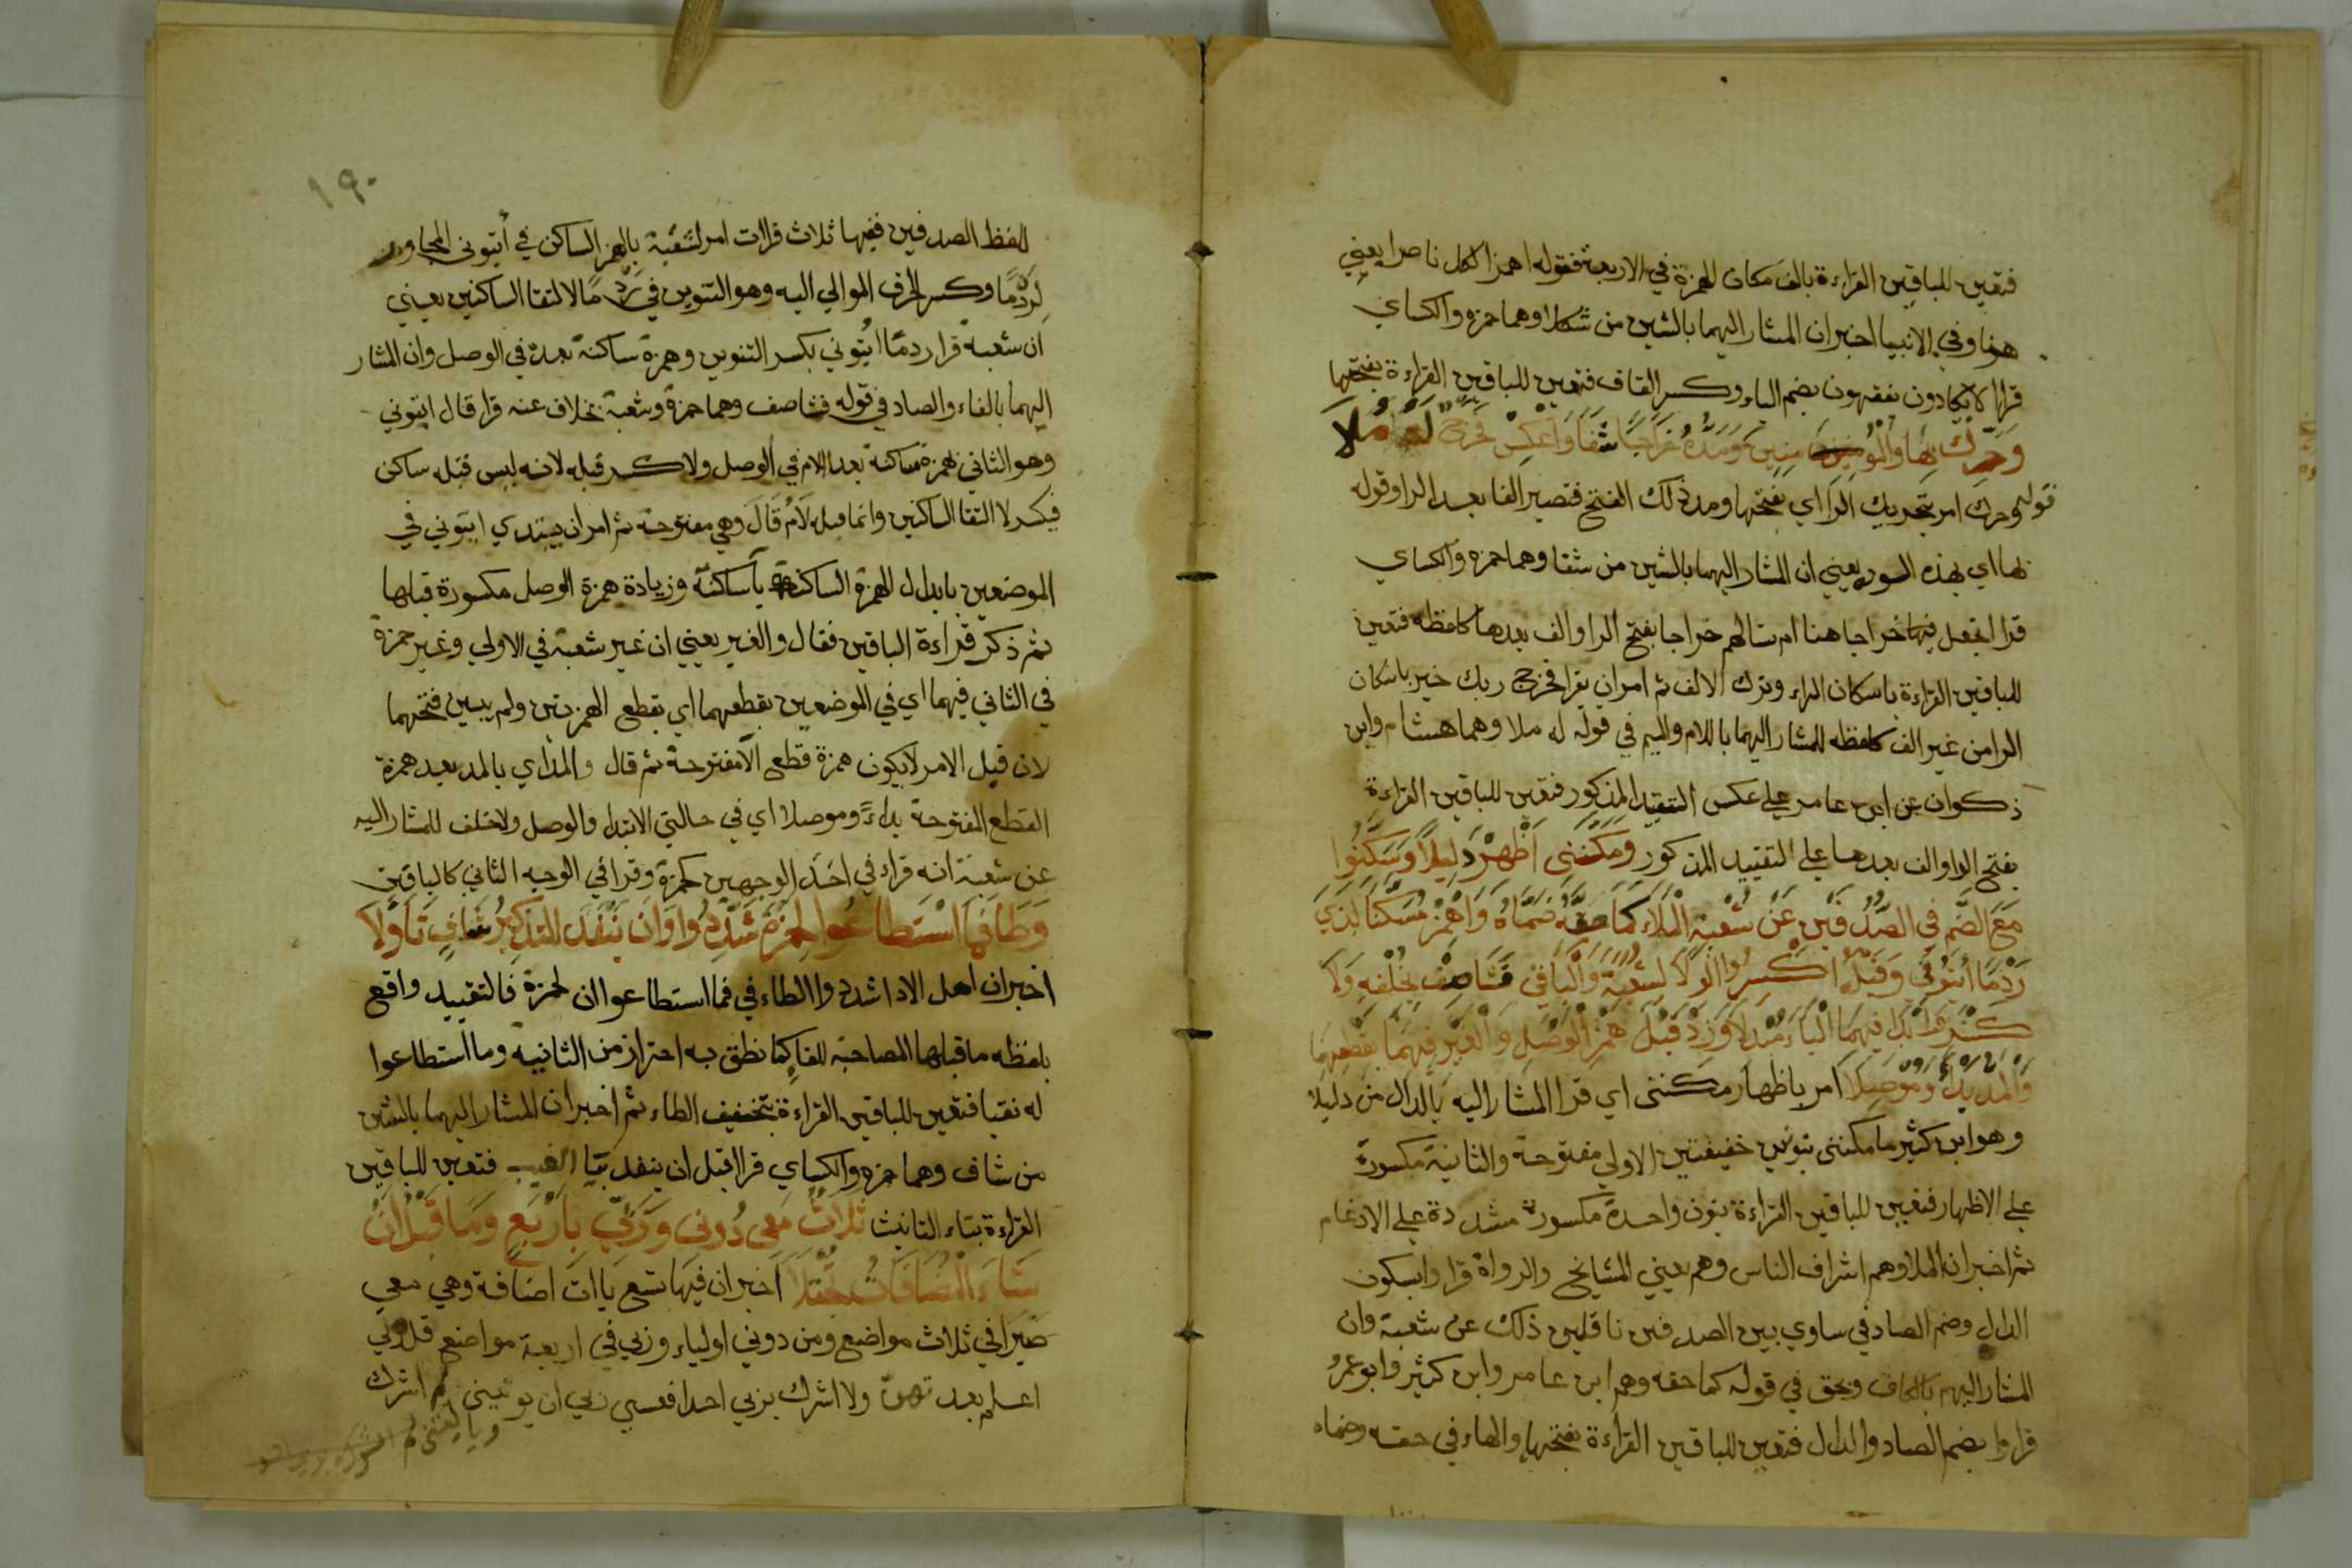 فتعين للباقين القراءة بالف مكان الهمزة في الاربعة فقوله اهمز الكل ناصرا يعني
هنا وفي الانبيا اخبر ان المشار اليهما بالشين من شكلا وهما حمزه والكساي
قرا لا يكادون يفقهون بضم الياء وكسر القاف فتعين للباقين القراءة بفتحهما
وَحَرِّكْ بِهَا وَالْمُؤْمِنِينَ وَمُدَّهُ خَرَاجًا شَفَا وَاعْكِسْ فَخَرْجُ لَهُ مُلَا
قوله وحرك امر بتحريك الرا اي بفتحها ومد ذلك الفتح فتصير الفا بعد الرا وقوله
بها اي بهذه السوره يعني ان المشار اليهما بالشين من شفا وهما حمزه والكساي
قرا نجعل خراجا هنا ام تسالهم خراجا بفتح الرا والف بعدها كلفظه فتعين
للباقين القراءة باسكان الراء وترك الالف ثم امر ان يقرا فخرج ربك خير باسكان
الرا من غير الف كلفظه للمشار اليهما باللام والميم في قوله له ملا وهما هشام وابن
ذكوان عن ابن عامر علي عكس التقييد المذكور فتعين للباقين القراءة
بفتح الرا والف بعدها علي التقييد المذكور وَمَكَّنَنِى أَظْهِرْ دَلِيلًا وَسَكَّنُوا
مَعَ الضَّمِّ فِى الصُّدْفَيْنِ عَنْ شُعْبَةَ الْمَلَا كَمَا حَقُّهُ ضَمَّاهُ وَاهْمِزْ مُسَكِّنًا لِذِي
رَدْمًا ائْتُونِى وَقَبْلُ اكْسِرُوا الْوِلَا لِشُعْبَةَ وَالثَّانِى فَشَا صِفْ بِخُلْفِهِ وَلَا
كَسْرَ وَابْدَأْ فِيهِمَا الْيَاءَ مُبْدِلَا وَزِدْ قَبْلُ هَمْزَ الْوَصْلِ وَالْغَيْرُ فِيهِمَا بِقَطْعِهِمَا
وَالْمَدِّ بَدْءًا وَمَوْصِلَا امر باظهار مكنني اي قرا المشار اليه بالدال من دليلا
وهو ابن كثير ما مكنني بنونين خفيفتين الاولي مفتوحة والثانية مكسورة
علي الاظهار فتعين للباقين القراءة بنون واحدة مكسورة مشددة علي الادغام
ثم اخبر ان الملا وهم اشراف الناس وهم يعني المشايخ والرواة قراوا بسكون
الدال وضم الصاد في ساوي بين الصدفين ناقلين ذلك عن شعبة وان
المشار اليهم بالكاف وبحق في قوله كما حقه وهم ابن عامر وابن كثير وابو عمرو
قراوا بضم الصاد والدال فتعين للباقين القراءة بفتحهما والهاء في حقه وضماه
١٩٠
للفظ الصدفين ففيها ثلاث قراات امر لشعبة بالهمز الساكن في ايتوني المجاور
لردما وكسر الحرف الموالي اليه وهو التنوين في ردما لالتقا الساكنين يعني
ان شعبة قرا ردما ايتوني بكسر التنوين وهمزة ساكنة بعده في الوصل وان المشار
اليهما بالفاء والصاد في قوله فشا صف وهما حمزة وشعبة بخلاف عنه قرا قال ايتوني
وهو الثاني بهمزة ساكنة بعد اللام في الوصل ولا كسر قبله لانه ليس قبله ساكن
فيكسر لالتقا الساكنين وانما قبله لام قال وهي مفتوحة ثم امر ان يبتدي ايتوني في
الموضعين بابدال الهمزة الساكنة ياساكنة وزيادة همزة الوصل مكسورة قبلها
ثم ذكر قراءة الباقين فقال والغير يعني ان غير شعبة في الاولي وغير حمزة
في الثاني فيهما اي في الموضعين بقطعهما اي بقطع الهمزتين ولم يبين فتحهما
لان قبل الامر لا يكون همزة قطع الا مفتوحة ثم قال والمد اي بالمد بعد همزة
القطع المفتوحة بداءً وموصلا اي في حالتي الابتدا والوصل ولاخلف للمشار اليه
عن شعبة انه قراء في احد الوجهين كحمزة وقرا في الوجه الثاني كالباقين
وَطَاءَ فَمَا اسْتَطَاعُوا لِحَمْزَةَ شَدِّدُوا وَأَنْ يَنْفَدَ التَّذْكِيرُ شَافٍ تَأَوَّلَا
اخبر ان اهل الادا شددوا الطاء في فما استطاعوا ان لحمزة فالتقييد واقع
بلفظه ماقبلها المصاحبة للفا كما نطق به احتراز من الثانيه وما استطاعوا
له نقبا فتعين للباقين القراءة بتخفيف الطاء ثم اخبر ان المشار اليهما بالشين
من شاف وهما حمزه والكساي قرا قبل ان ينفد بيا الغيب فتعين للباقين
القراءة بتاء التانيث ثَلَاثٌ مَعِى دُونِى وَرَبِّى بِأَرْبَعٍ وَمَا قَبْلَ إِنْ
شَاءَ الْمُضَافَاتُ تُجْتَلَا اخبر ان فيها تسع ياات اضافة وهي معي
صبرا في ثلاث مواضع ومن دوني اولياء وربي في اربعة مواضع قل ربي
اعلم بعدتهن ولا اشرك بربي احدا فعسي ربي ان يوتيني لم اشرك